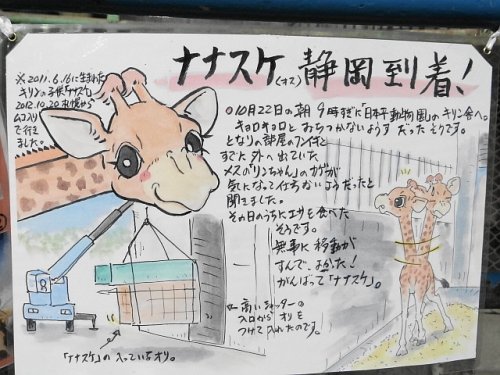 ナナスケ(オス)静岡到着!
※2011.6.16に生まれた
キリンの子供「ナナスケ」
2012.10.20 札幌から
ムコ入り
で行き
ました。
○10月22日の朝 9時すぎに「日本平動物園」のキリン舎へ。
キョロキョロと おちつかないようす だったそうです。
となりの部屋のフン仔と
すでに外へ出ていた
メスの「リンちゃん」のカゲが
気になって仕方ないようだったと
聞きました。
その日のうちにエサを食べた
そうです。
無事に移動が
すんで、よかった!
がんばって「ナナスケ」。
←高いシャッターの
入口からオリを
つけて入れたのです。
「ナナスケ」の入っているオリ。